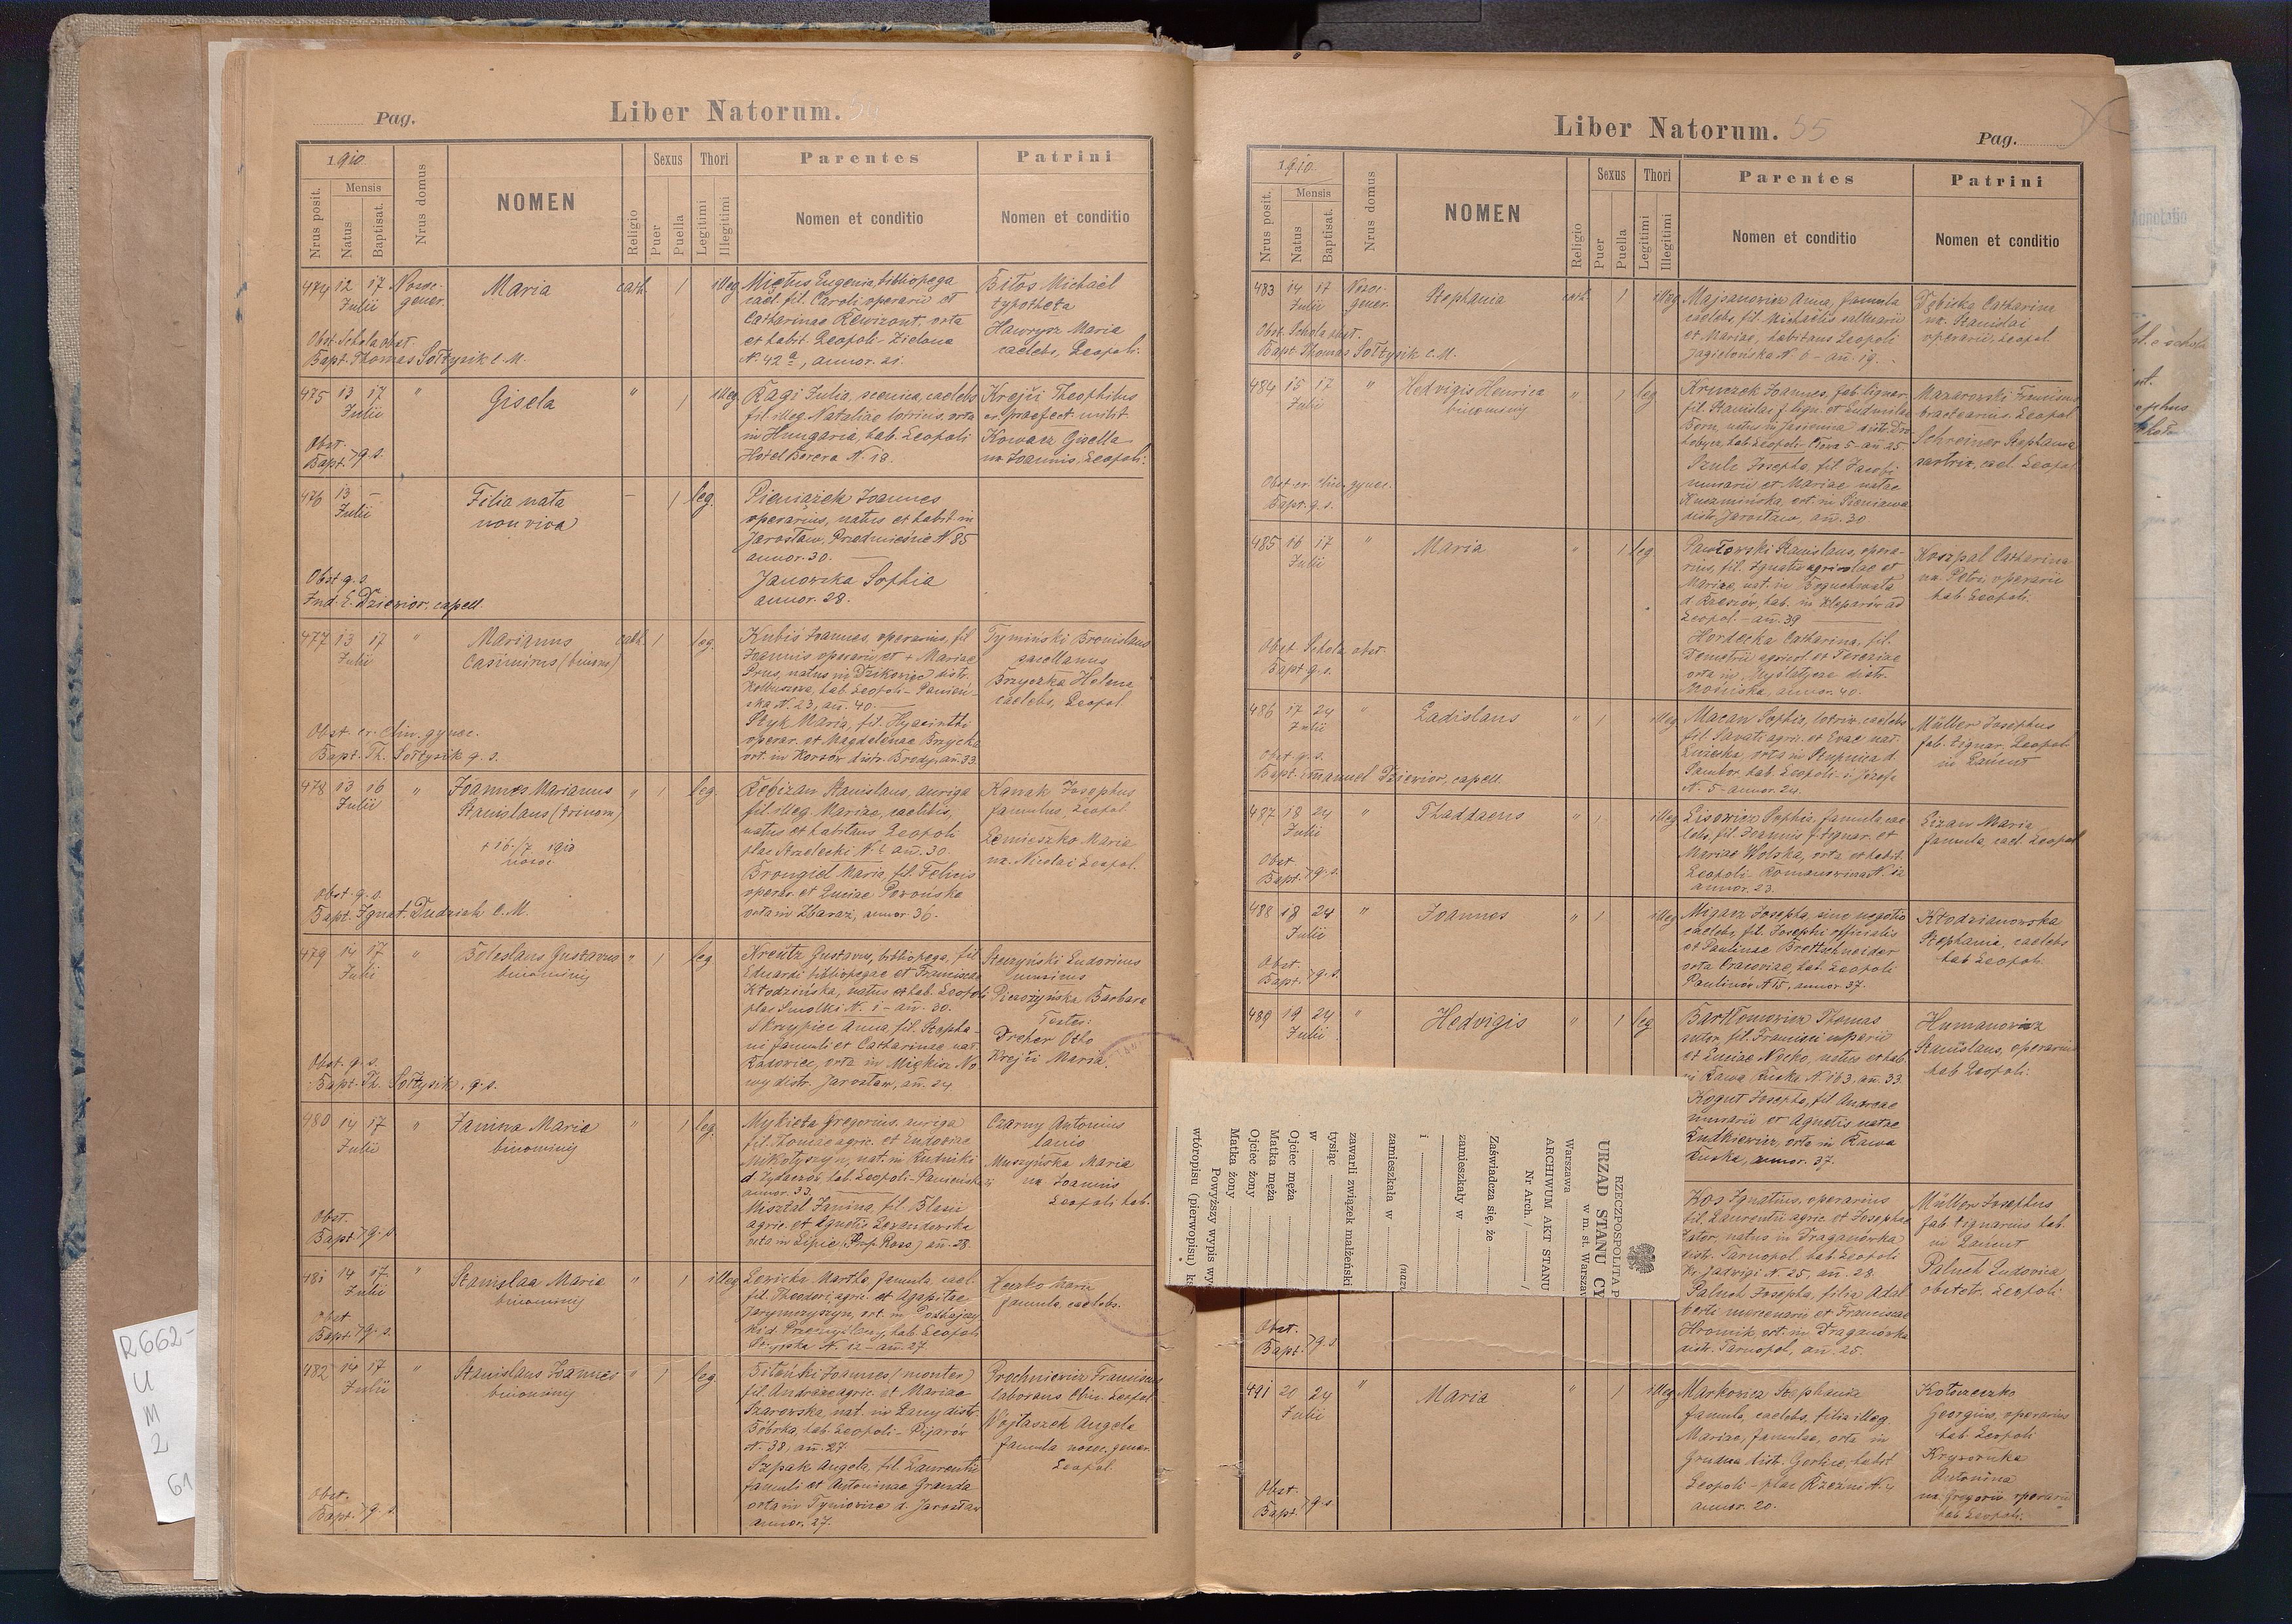 Pag.
Liber Natorum. 54
1910
Nrus posit.
Mensis
Natus
Baptisat.
Nrus domus
NOMEN
Religio
Sexus
Puer
Puella
Thori
Legitimi
Illegitimi
Parentes
Nomen et conditio
Patrini
Nomen et conditio
474 12 17 Julii
gener.
Maria
cath. 1 illeg.
Mictus Eugenia, bibliopega
cael. fil. Caroli operarii et
Catharinae Rewizont, orta
et habit. Leopoli - Zielona
N. 42 a, annor. 21.
Bilos Michael
typotheta
Hawrysz Maria
caelebs, Leopoli.
Obst. Schola obst.
Bapt. Thomas Sołtysik c. M.
475 13 17 Julii
"
Gisela
" 1 illeg.
Ragi Julia, scenica, caelebs
in Hungaria, hab. Leopoli
Hotel Berera N. 18.
Krejči Theophilus
Kowacz Gisella
ux. Joannis, Leopoli.
Obst.
Bapt. q. s.
476 13 – Julii
Filia nata
non viva
– 1 leg.
Pieniążek Joannes
operarius, natus et habit. in
Jarosław, Przedmieście N. 85
annor. 30.
Janowska Sophia
annor. 28.
Obst. q. s.
Ind. E. Dziewior, capell.
477 13 17 Julii
"
Marianus
Casimirus (binom)
cath. 1 leg.
Kubiś Joannes, operarius, fil.
Joannis operarii et + Mariae
Prus, natus in Dzikowiec distr.
Kolbuszowa, hab. Leopoli - Panień-
ska N. 23, an. 40.
Styk Maria, fil. Hyacinthi
operar. et Magdalenae
ort. in Korsów distr. Brody, an. 33.
Tymiński Bronislaus
Brzyczka Helena
caelebs, Leopol.
Obst. ex. clin. gynec.
Bapt. Th. Sołtysik q. s.
478 13 16 Julii
"
Joannes Marianus
Stanislaus (trinom)
+ 16/7 1910
" 1 leg.
Stanislaus, auriga
fil. illeg. Mariae, caelibis,
natus et habitans Leopoli
plac Strzelecki N. 2 an. 30.
Brongiel Maria, fil. Felicis
operar. et Luciae
orta in Zbaraż, annor. 36.
Kawak Josephus
famulus, Leopol.
Lemieszko Maria
ux. Nicolai Leopol.
Obst. q. s.
Bapt. Ignat. Dudziak c. M.
479 14 17 Julii
"
Boleslaus Gustavus
binominis
" 1 leg.
Kreutz Gustavus, bibliopega, fil.
Eduardi bibliopegae et Franciscae
Kłodzińska, natus et hab. Leopoli
plac Smolki N. 1 - an. 30.
Skrzypiec Anna, fil. Stepha-
ni famuli et Catharinae nat.
orta in Miękisz No-
wy distr. Jarosław, an. 24
Ludovicus
Barbara
Testes:
Dreher Otto
Krejči Maria.
Obst. q. s.
Bapt. Th. Sołtysik, q. s.
480 14 17 Julii
"
Janina Maria
binominis
" 1 leg.
Mykieta Gregorius, auriga
fil. Thomae agric. et Ludovicae
Mikołyszyn, nat. in Rudniki
d. Żydaczów, hab. Leopoli - Panieńska
annor. 33.
Misztal Janina, fil. Blasii
agric. et Agnetis Lewandowska
orta in Lipie (Prop. Ross.) an. 28.
Czarny Antonius
lanio
Muszyńska Maria
ux. Joannis
Leopoli hab.
Obst.
Bapt. q. s.
481 14 17 Julii
"
Stanislaa Maria
binominis
" 1 illeg.
Lewicka Martha, famula, cael.
fil. Theodori agric. et Agapitae
hab. Leopoli
N. 12 - an. 27.
Maria
famula, caelebs.
Obst.
Bapt. q. s.
482 14 17 Julii
"
Stanislaus Joannes
binominis
" 1 leg.
Joannes (monter)
fil. Andreae agric. et Mariae
Szarowska, nat. in Łany distr.
Bóbrka, hab. Leopoli - Pijarów
N. 38, an. 27
Szpak Angela, fil. Laurentii
famuli et Antoninae Granda
orta in Tyniowice d. Jarosław
annor. 27.
Prochniewicz Franciscus
laborans clin. Leopol.
Wojtaszek Angela
famula nosoc. gener.
Leopol.
Obst.
Bapt. q. s.
Liber Natorum. 55
Pag.
1910
Nrus posit.
Mensis
Natus
Baptisat.
Nrus domus
NOMEN
Religio
Sexus
Puer
Puella
Thori
Legitimi
Illegitimi
Parentes
Nomen et conditio
Patrini
Nomen et conditio
483 14 17 Julii
gener.
Stephania
cath. 1 illeg.
Majsanowicz Anna, famula
caelebs, fil. Michaelis saltuarii
et Mariae, habitans Leopoli
Jagielońska N. 6 - an. 19.
Dębicka Catharina
ux. Stanislai
operarii, Leopol
Obst. Schola obst.
Bapt. Thomas Sołtysik c. M.
484 15 17 Julii
"
Hedvigis Henrica
binominis
" 1 leg.
Kruczek Joannes, fab. lignar.
fil. Stanislai f. lign. et Ludmilae
Born, natus in Jasienna distr. Dro-
hobycz, hab. Leopoli - 5 - an. 25.
Szulc Josepha, fil. Jacobi
murarii et Mariae natae
Kuzmińska, ort. in Sieniawa
distr. Jarosław, an. 30
Mazarowski Franciscus
bractearius. Leopol.
Schreiner Stephania
sartrix, cael. Leopol.
Obst. ex. clin. gynec.
Bapt. q. s.
485 16 17 Julii
"
Maria
" 1 leg.
Pawłowski Stanislaus, opera-
rius, fil. Ignatii agricolae et
Mariae, nat. in Boguchwała
d. Rzeszów, hab. in Kleparów ad
Leopol. - an. 39
Hordecka Catharina, fil.
Demetrii agricol. et Teresiae
orta in Myślatycze distr.
Mościska, annor. 40.
Koszpal Catharina
ux. Petri operarii
hab. Leopoli.
Obst. Schola obst.
Bapt. q. s.
486 17 24 Julii
"
Ladislaus
" 1 illeg.
Macan Sophia, lotrix, caelebs
fil. Savati agric. et Evae nat.
orta in Stupnica d.
Sambor, hab. Leopoli - S. Józefa
N. 5 - annor. 24.
Müller Josephus
fab. lignar. Leopol.
in Łańcut
Obst. q. s.
Bapt. Emanuel Dziewior, capell.
487 18 24 Julii
"
Thaddaeus
" 1 illeg.
Lisowicz Sophia, famula cae-
lebs, fil. Joannis f. lignar. et
Mariae Wolska, orta et habit.
Leopoli - Romanowicza N. 12
annor. 23.
Lizan Maria
famula, cael. Leopol
Obst.
Bapt. q. s.
488 18 24 Julii
"
Joannes
" 1 illeg.
Migasz Josepha, sine negotio
caelebs, fil. Josephi officialis
et Paulinae Brettschneider
orta Cracoviae, hab. Leopoli
Paulinów N. 15, annor. 37.
Kłodzianowska
Stephania, caelebs
hab. Leopoli.
Obst.
Bapt. q. s.
489 19 24 Julii
"
Hedvigis
" 1 leg.
Bartłomowicz Thomas
sutor, fil. Francisci
et Luciae Nocko, natus et hab.
in Rawa Ruska N. 163. an. 33.
Kogut Josepha, fil. Andreae
murarii et Agnetis natae
Rudkiewicz, orta in Rawa
Ruska, annor. 37.
Humanowicz
Stanislaus, operarius
hab. Leopoli.
RZECZPOSPOLITA P
URZĄD STANU CY
w m. st. Warszaw
Warszawa
ARCHIWUM AKT STANU
Nr. Arch. /
Zaświadcza się, że
zamieszkały w
i
zamieszkała w
(nazw
zawarli związek małżeński
tysiąc
w
Ojciec męża
Matka męża
Ojciec żony
Matka żony
Powyższy wypis wy
wtóropisu (pierwopisu) ks
Kos Ignatius, operarius
fil. Laurentii agric. et Josephae
Zator, natus in Draganówka
distr. Tarnopol, hab. Leopoli
Kr. Jadwigi N. 25, an. 28.
Paluch Josepha, filia Adal-
berti mercenarii et Franciscae
Hromik ort. in Draganówka
distr. Tarnopol, an. 25.
Müller Josephus
fab. lignarius hab.
in Łańcut
Paluch Ludovica
obstetr. Leopoli
Obst.
Bapt. q. s.
491 20 24 Julii
"
Maria
" 1 illeg.
Markowicz Stephania
famula, caelebs, filia illeg.
Mariae, famulae, orta in
distr. Gorlice, habit.
Leopoli - plac Rzeźni N. 2
annor. 20.
Kotwaczko
Georgius, operarius
hab. Leopoli
Antonina
ux. Gregorii operarii
hab. Leopoli.
Obst.
Bapt. q. s.
Adnotatio
R662-
U
M
2
61